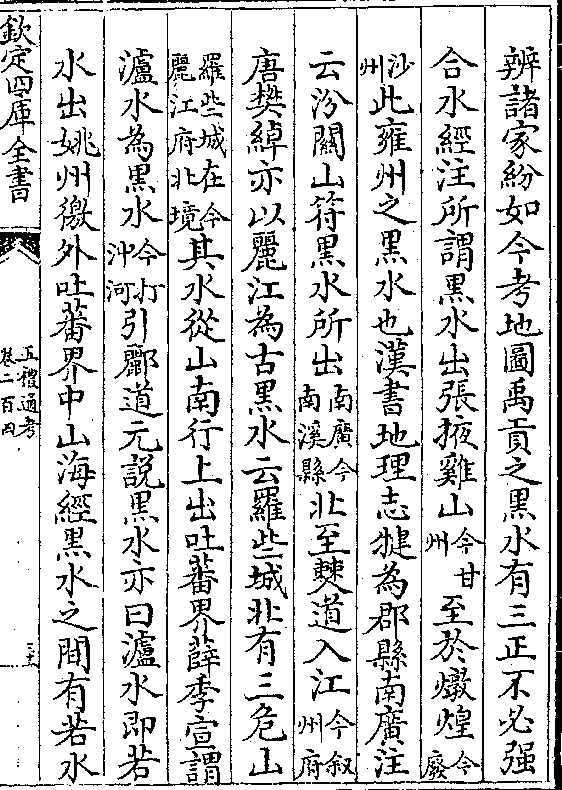 辨諸家紛如今考地圖禹貢之黑水有三正不必强
合水經注所謂黑水出張掖雞山今甘州至於燉煌今廢
沙州此雍州之黑水也漢書地理志犍為郡縣南廣注
云汾關山符黑水所出南廣今南溪縣北至僰道入江今叙州府
唐樊綽亦以麗江為古黑水云羅些城北有三危山
羅些城在今麗江府北境其水從山南行上出吐蕃界薛季宣謂
瀘水為黑水今打沖河引酈道元説黑水亦曰瀘水即若
水出姚州徼外吐蕃界中山海經黑水之間有若水
欽定四庫全書
五禮通考
卷二百四